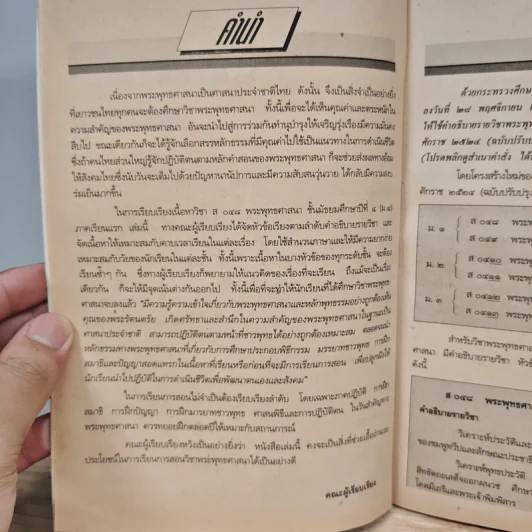 คำนำ
เนื่องจากพระพุทธศาสนาเป็นศาสนาประจำชาติไทย ดังนั้น จึงเป็นสิ่งจำเป็นอย่างยิ่ง
ที่เยาวชนไทยทุกคนจะต้องศึกษาวิชาพระพุทธศาสนา ทั้งนี้เพื่อจะได้เห็นคุณค่าและตระหนักใน
ความสำคัญของพระพุทธศาสนา อันจะนำไปสู่การร่วมกันทำนุบำรุงให้เจริญรุ่งเรืองมีความมั่นคง
สืบไป ขณะเดียวกันก็จะได้รู้จักเลือกสรรหลักธรรมที่มีคุณค่าไปใช้เป็นแนวทางในการดำเนินชีวิต
ซึ่งถ้าคนไทยส่วนใหญ่รู้จักปฏิบัติตนตามหลักคำสอนของพระพุทธศาสนา ก็จะช่วยส่งผลทางอ้อม
ให้สังคมไทยซึ่งนับวันจะเต็มไปด้วยปัญหานานัปการและมีความสับสนวุ่นวาย ได้กลับมีความสงบ
ร่มเย็นมากขึ้น
ในการเรียบเรียงเนื้อหาวิชา ส ๐๔๘ พระพุทธศาสนา ชั้นมัธยมศึกษาปีที่ ๑ (ม.๑)
ภาคเรียนแรก เล่มนี้ ทางคณะผู้เรียบเรียงได้จัดหัวข้อเรียงตามลำดับคำอธิบายรายวิชา และ
จัดเนื้อหาให้เหมาะสมกับคาบเวลาเรียนในแต่ละเรื่อง โดยใช้สำนวนภาษาและให้มีความยากง่าย
เหมาะสมกับวัยของนักเรียนในแต่ละชั้น ทั้งนี้เพราะเนื้อหาในบางหัวข้อของทุกระดับชั้น จะต้อง
เรียนซ้ำๆ กัน ซึ่งทางผู้เรียบเรียงก็พยายามให้แนวคิดของเรื่องที่จะเรียน ถึงแม้จะเป็นเรื่อง
เดียวกัน ก็จะให้มีจุดเน้นต่างกันออกไป ทั้งนี้เพื่อที่จะทำให้นักเรียนที่ได้ศึกษาวิชาพระพุทธ
ศาสนาจบลงแล้ว "มีความรู้ความเข้าใจเกี่ยวกับพระพุทธศาสนาและหลักพุทธธรรมอย่างถูกต้องเห็น
คุณของพระรัตนตรัย เกิดศรัทธาและสำนึกในความสำคัญของพระพุทธศาสนาในฐานะเป็น
ศาสนาประจำชาติ สามารถปฏิบัติตนตามหน้าที่ชาวพุทธได้อย่างถูกต้องเหมาะสม ตลอดจนนำ
หลักธรรมทางพระพุทธศาสนาที่เกี่ยวกับการศึกษาประกอบพิธีกรรม มรรยาทชาวพุทธ การฝึก
สมาธิและปัญญาสอดแทรกในเนื้อหาที่เรียนหรือก่อนที่จะมีการเรียนการสอน เพื่อปลูกฝังให้
นักเรียนนำไปปฏิบัติในการดำเนินชีวิตเพื่อพัฒนาตนเองและสังคม"
ในการเรียนการสอนไม่จำเป็นต้องเรียบเรียงลำดับ โดยเฉพาะภาคปฏิบัติ การฝึก
สมาธิ การฝึกปัญญา การฝึกมารยาทชาวพุทธ ศาสนพิธีและการปฏิบัติตน ในวันสำคัญทาง
พระพุทธศาสนา ควรทยอยฝึกตลอดปีให้เหมาะกับสถานการณ์
คณะผู้เรียบเรียงหวังเป็นอย่างยิ่งว่า หนังสือเล่มนี้ คงจะเป็นสิ่งที่ช่วยเอื้ออำนวย
ประโยชน์ในการเรียนการสอนวิชาพระพุทธศาสนาได้เป็นอย่างดี
คณะผู้เรียบเรียง
ด้วยกระทรวงศึกษา
ลงวันที่ ๒๘ พฤศจิกายน
ให้ใช้คำอธิบายรายวิชาพระพุทธ
ศักราช ๒๕๒๑ (ฉบับปรับปรุง
(โปรดพลิกดูสำเนาคำสั่ง
โดยโครงสร้างใหม่ของ
ศักราช ๒๕๒๑ (ฉบับปรับปรุง
ม. ๑ ส ๐๔๘ พระพุ
ส ๐๔๙ พระพุ
ม. ๒ ส ๐๔๑๐ พระพุ
ส ๐๔๑๑ พระพุ
ม. ๓ ส ๐๔๑๒ พระพุ
ส ๐๔๑๓ พระพุ
สำหรับวิชาพระพุทธ
ศาสนา มีคำอธิบายรายวิชา หัวข้อ
ดังนี้
ส ๐๔๘ พระพุทธศาสนา
คำอธิบายรายวิชา
วิเคราะห์ประวัติและ
ของชมพูทวีปและลักษณะประชา
วิเคราะห์พุทธประวัติ
สิทธัตถะเสด็จออกผนวช ศึกษา
โคตมีเถรีและพระเจ้าพิมพิสาร